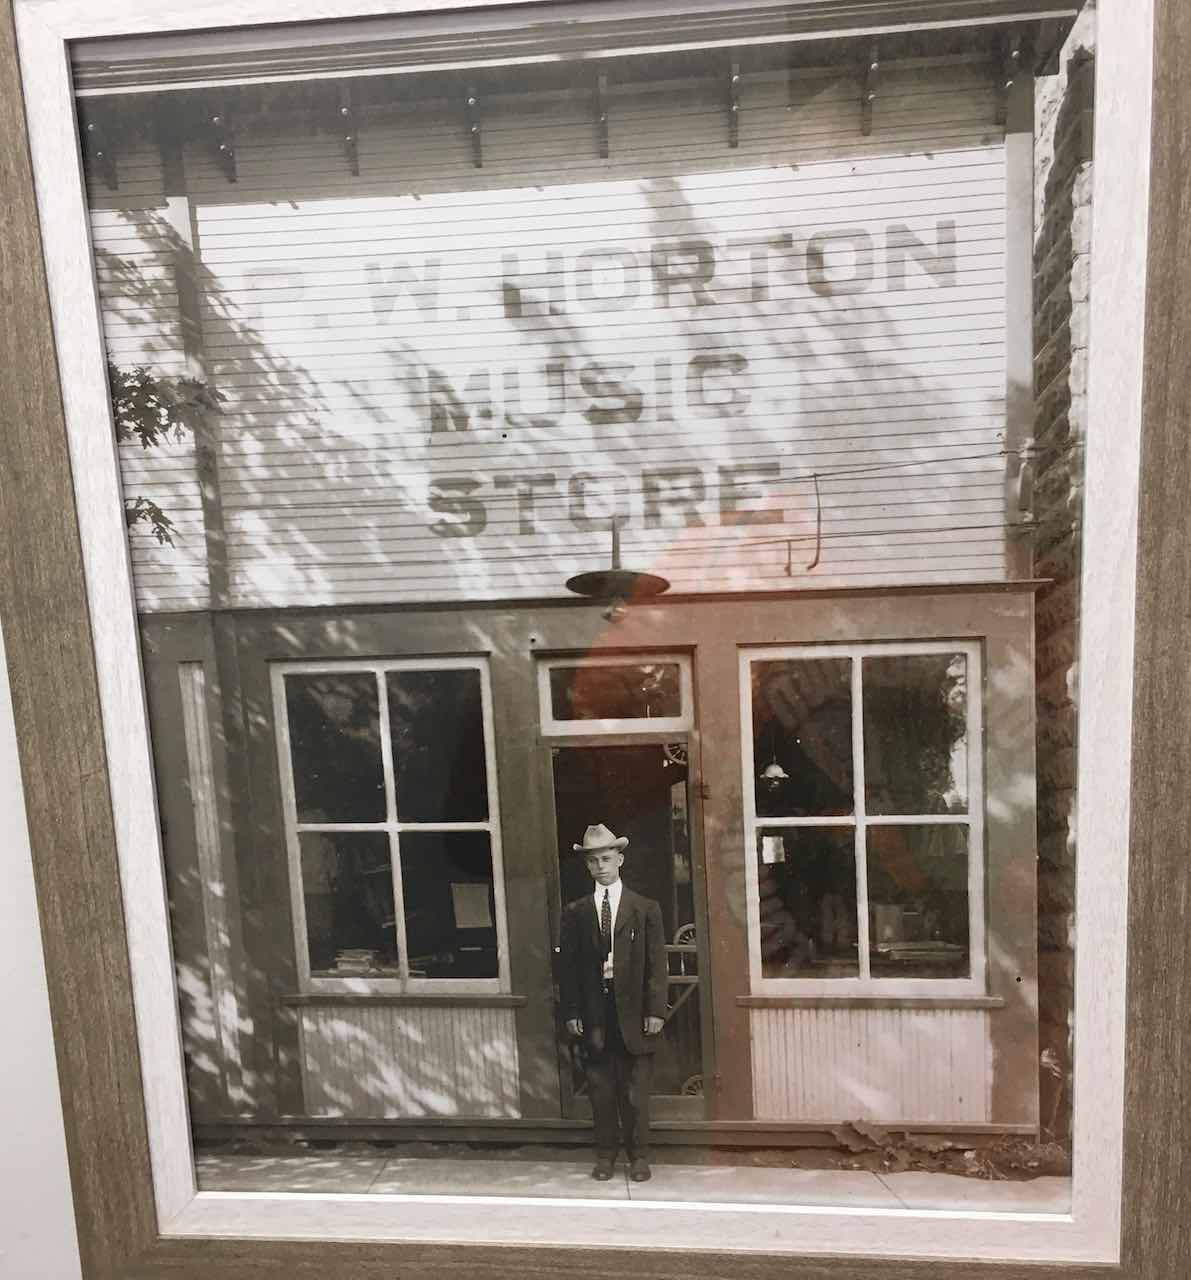 P. W. HORTON
MUSIC
STORE